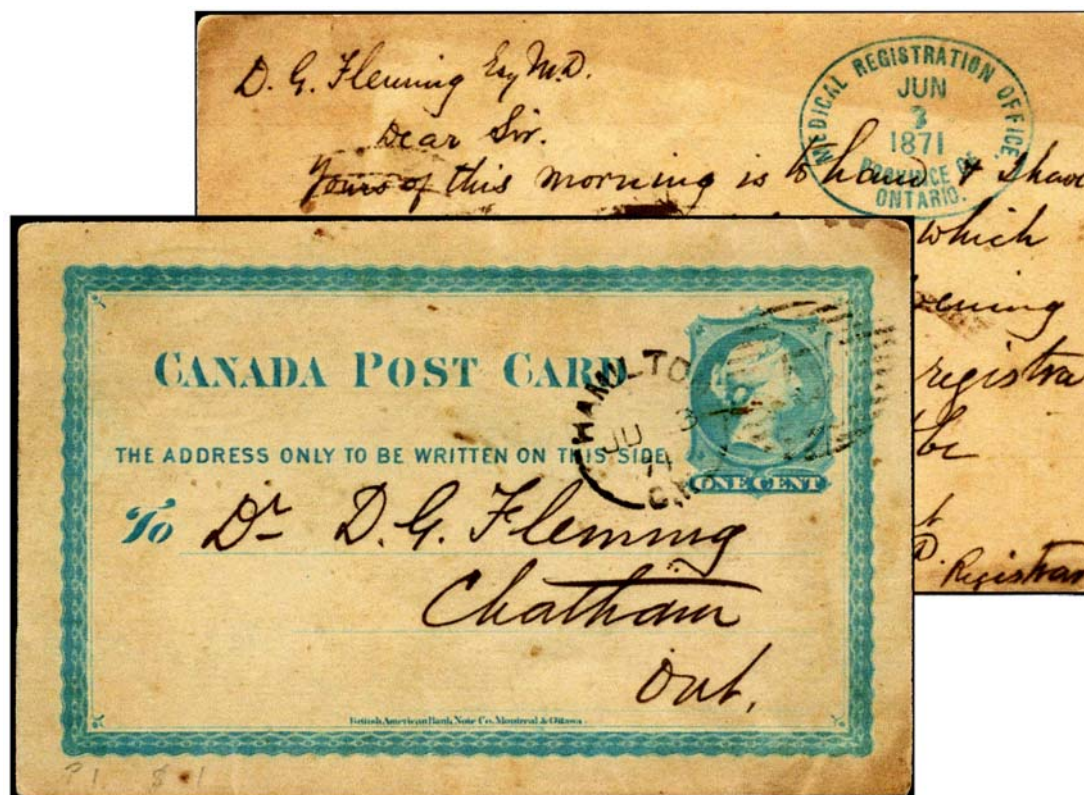 D. G. Fleming Esq M.D.
Dear Sir.
Yours of this morning is to hand & I have
which
registra
be
Registrar
MEDICAL REGISTRATION OFFICE.
JUN
3
1871
PROVINCE OF
ONTARIO.
CANADA POST CARD
HAMILTO
JU 3
THE ADDRESS ONLY TO BE WRITTEN ON THIS SIDE
ONE CENT
To Dr D. G. Fleming
Chatham
Ont.
British American Bank Note Co. Montreal & Ottawa.